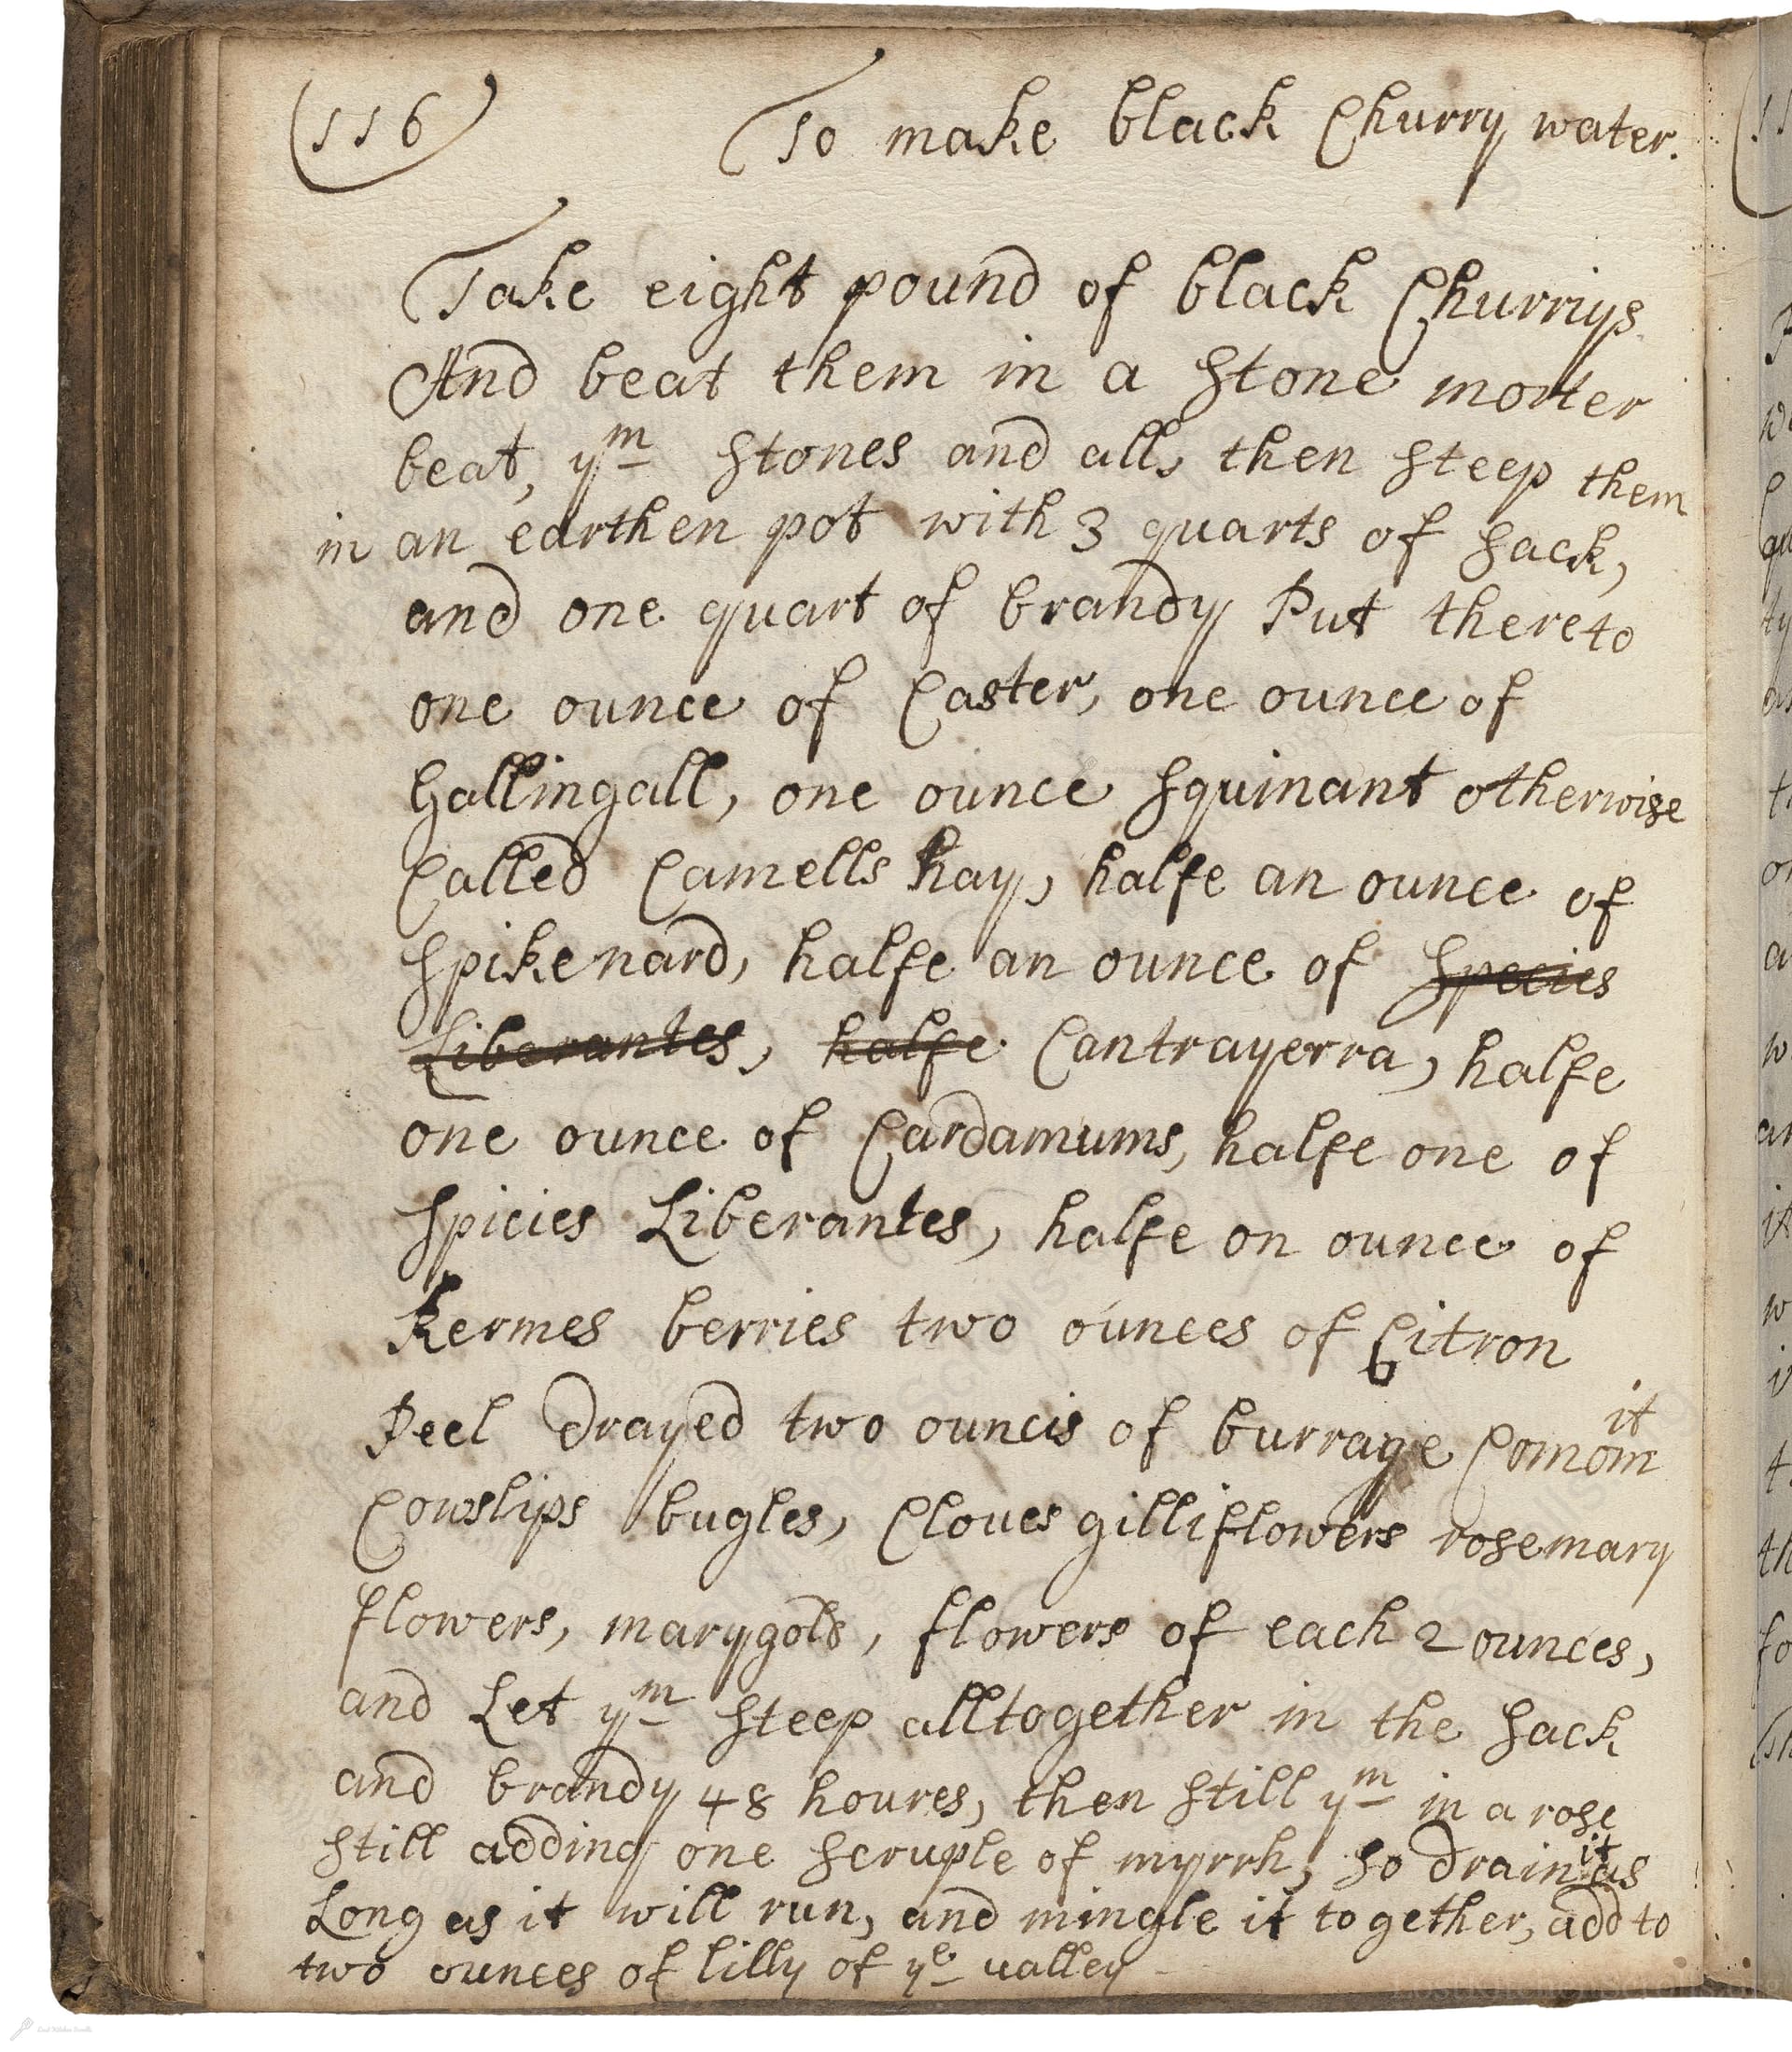 (116)
To make black Churry water.
Take eight pound of black Churriys
And beat them in a stone morter
beat, yᵐ stones and all, then steep them
in an earthen pot with 3 quarts of sack,
and one quart of brandy Put thereto
one ounce of Caster, one ounce of
Gallingall, one ounce squinant otherwise
Called Camells hay, halfe an ounce of
spikenard, halfe an ounce of species
Liberantes, halfe Cantrayerra, halfe
one ounce of Cardamums, halfe one of
spicies Liberantes, halfe on ounce of
Kermes berries two ounces of Citron
Peel drayed two ouncis of burrage
it
Cowslips bugles, Cloues gilliflowers rosemary
flowers, marygols, flowers of each 2 ounces,
and Let yᵐ steep alltogether in the sack
and brandy 48 houres, then still yᵐ in a rose
still adding one scruple of myrrh, so drain it as
Long as it will run, and mingle it together, add to
two ounces of lilly of yᵉ valley